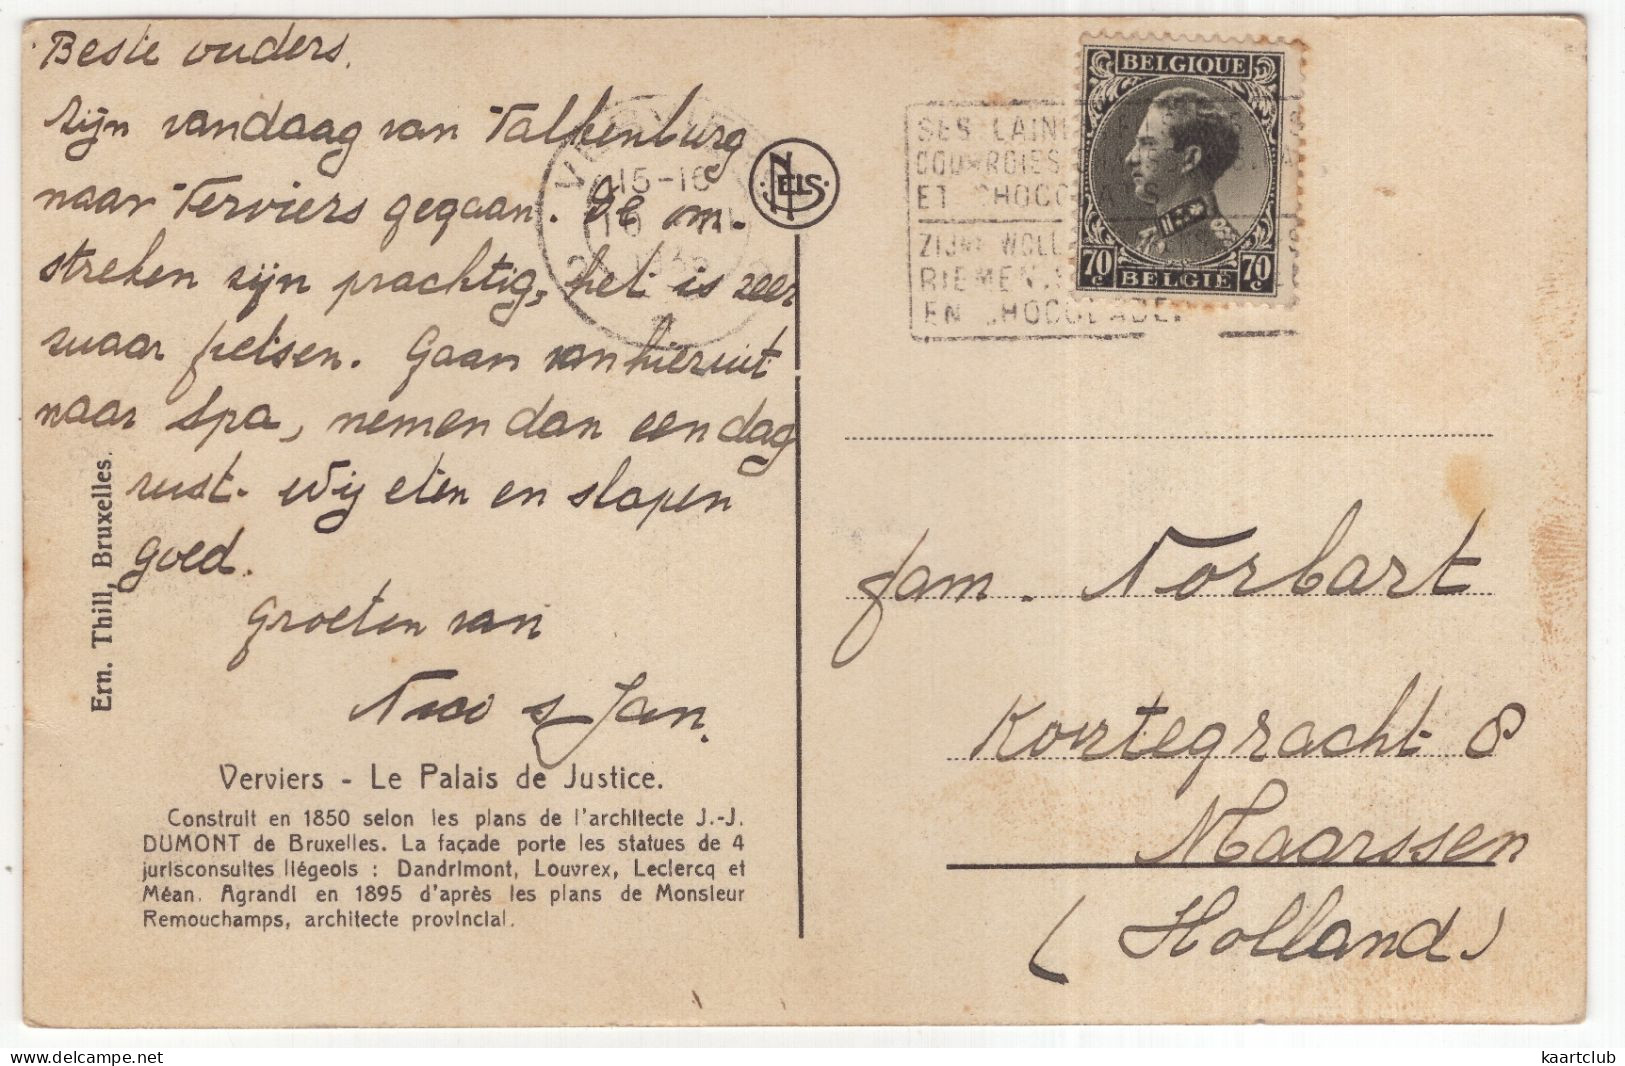 Beste ouders.
Zijn vandaag van Valkenburg
naar Verviers gegaan. De om-
streken zijn prachtig, het is zeer
zwaar fietsen. Gaan van hieruit
naar Spa, nemen dan een dag
rust. Wij eten en slapen
goed.
Groeten van
& Jan.
Ern. Thill, Bruxelles.
Verviers - Le Palais de Justice.
Construit en 1850 selon les plans de l'architecte J.-J.
DUMONT de Bruxelles. La façade porte les statues de 4
jurisconsultes liégeois : Dandrimont, Louvrex, Leclercq et
Méan. Agrandi en 1895 d'après les plans de Monsieur
Remouchamps, architecte provincial.
NELS
15-16
BELGIQUE
70c 70c
BELGIE
SES LAIN
COURROIES
ET CHOCOLATS
ZIJNE WOLL
RIEMEN
EN CHOCOLADE.
fam. Norbart
Kortegracht 8
Maarssen
(Holland)
kaartclub